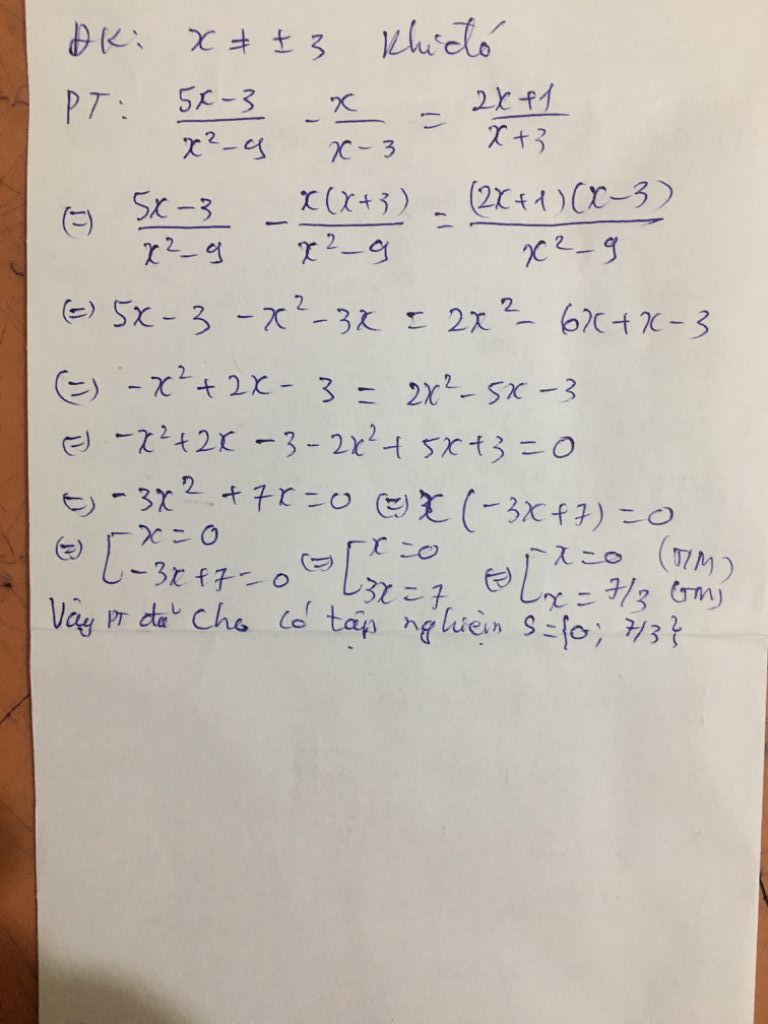 ĐK: x ≠ ± 3 Khi đó
PT: (5x-3)/(x²-9) - x/(x-3) = (2x+1)/(x+3)
(=) (5x-3)/(x²-9) - x(x+3)/(x²-9) = (2x+1)(x-3)/(x²-9)
(=) 5x - 3 - x² - 3x = 2x² - 6x + x - 3
(=) -x² + 2x - 3 = 2x² - 5x - 3
(=) -x² + 2x - 3 - 2x² + 5x + 3 = 0
(=) -3x² + 7x = 0 (=) x(-3x+7) = 0
(=) [x = 0; -3x+7 = 0 (=) [x = 0; 3x = 7 (=) [x = 0 (TM); x = 7/3 (TM)
Vậy PT đã cho có tập nghiệm S={0; 7/3}